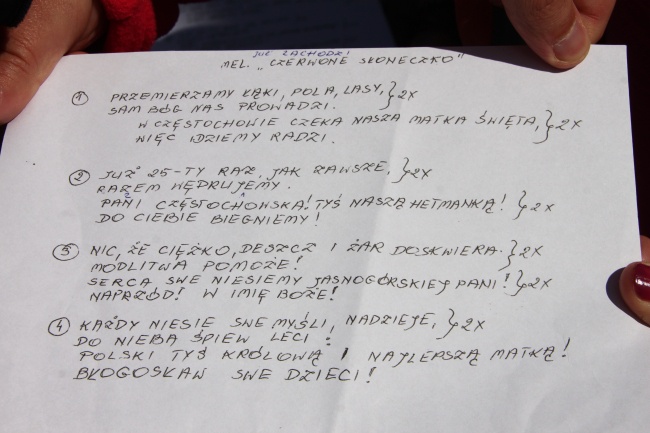 JUŻ ZACHODZI
MEL. „CZERWONE SŁONECZKO"
1 PRZEMIERZAMY ŁĄKI, POLA, LASY, }2X
SAM BÓG NAS PROWADZI.
W CZĘSTOCHOWIE CZEKA NASZA MATKA ŚWIĘTA, }2X
WIĘC IDZIEMY RADZI.
2 JUŻ 25-TY RAZ, JAK ZAWSZE, }2X
RAZEM WĘDRUJEMY.
PANI CZĘSTOCHOWSKA! TYŚ NASZĄ HETMANKĄ! }2X
DO CIEBIE BIEGNIEMY!
3 NIC, ŻE CIĘŻKO, DESZCZ I ŻAR DOSKWIERA. }2X
MODLITWA POMOŻE!
SERCA SWE NIESIEMY JASNOGÓRSKIEJ PANI! }2X
NAPRZÓD! W IMIĘ BOŻE!
4 KAŻDY NIESIE SWE MYŚLI, NADZIEJE, }2X
DO NIEBA ŚPIEW LECI:
POLSKI TYŚ KRÓLOWĄ I NAJLEPSZĄ MATKĄ!
BŁOGOSŁAW SWE DZIECI!